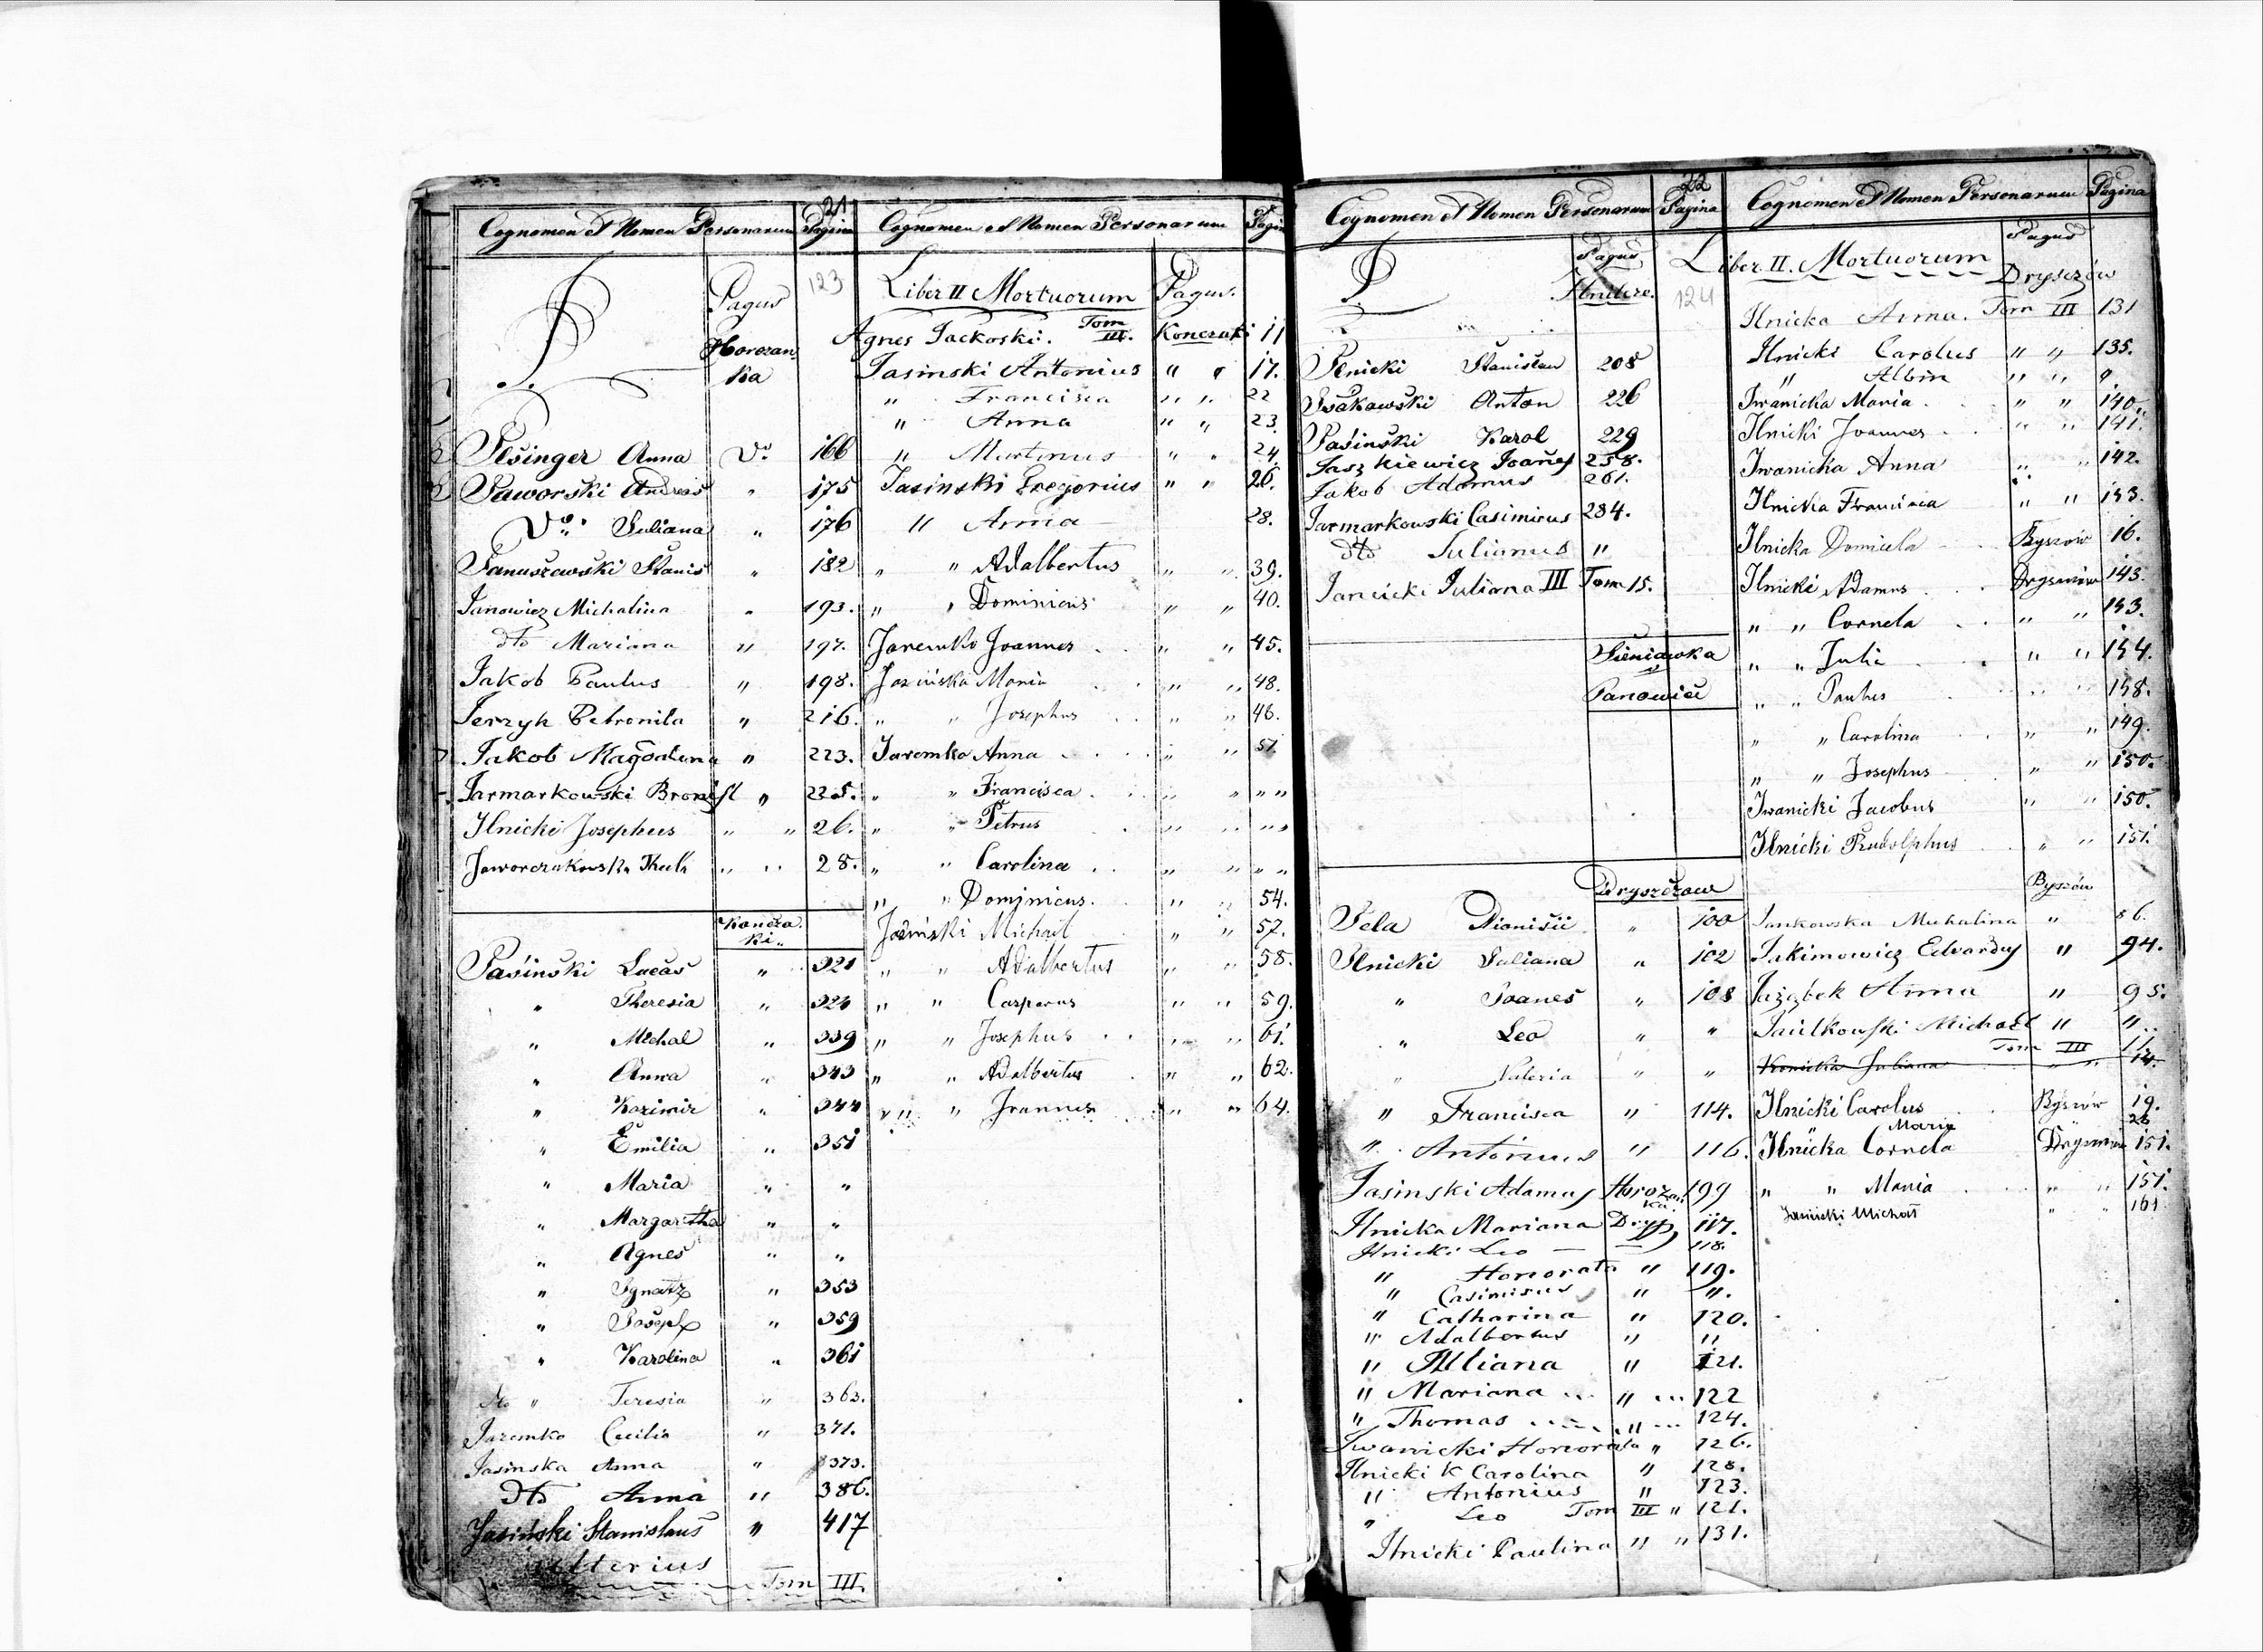 21
Cognomen et Nomen Personarum Pagina
123
J. Pagus
Horozan
ka
Jesinger Anna Dº 166
Jaworski Andreas " 175
Dº Juliana " 176
Januszewski Stanis " 182
Janowicz Michalina " 193.
dto Mariana " 197.
Jakob Paulus " 198.
Jerzyk Petronila " 216.
Jakob Magdalena " 223.
Jarmarkowski Bronisl " 225.
Ilnicki Josephus " " 26.
Jaworczakowska " " 28.
Koncza
ki
Jasinski Lucas " 321
" Theresia " 324
" Michal " 339
" Anna " 343
" Kazimir " 344
" Emilia " 351
" Maria " "
" Margaretha " "
" Agnes " "
" Ignatz " 353
" Joseph " 359
" Karolina " 361
dto " Teresia " 363.
Jaremko Cecilia " 371.
Jasinska Anna " 373.
dto Anna " 386.
Jasinski Stanislaus " 417
ulterius
Tom III.
Cognomen et Nomen Personarum Pagin
Liber II Mortuorum Pagus.
Agnes Jackoski. Tom III. Konczaki 11
Jasinski Antonius " " 17.
" Francisca " " 22
" Anna " " 23.
" Martinus " " 24.
Jasinski Gregorius " " 26.
" Anna 28.
" " Adalbertus " " 39.
" " Dominicus " " 40.
Jaremko Joannes " " 45.
Jasinska Maria " " 48.
" " Josephus " " 46.
Jaremko Anna " " 51.
" " Francisca " " " "
" " Petrus " " " "
" " Carolina " " " "
" " Dominicus. " " 54.
Jasinski Michael " " 57.
" " Adalbertus " " 58.
" " Casparus " " 59.
" " Josephus " " 61.
" " Adalbertus " " 62.
" " Joannes " " 64.
22
Cognomen et Nomen Personarum Pagina
124
J. Pagus
Ilnicki Stanislau 208
Isakowski Anton 226
Jasinski Karol 229
Jaszkiewicz Joanes 258.
Jakob Adamus 261.
Jarmarkowski Casimirus 284.
dto Julianus "
Janicki Juliana III Tom 15.
Sieniawka
Panowice
Dryszczow
Jela Dionisii " 100
Ilnicki Juliana " 102
" Joanes " 108
" Leo " "
" Valeria " "
" Francisca " 114.
" Antonius " 116.
Jasinski Adamus Horozan
ka 199
Ilnicka Mariana Drysz 117.
Ilnicki Leo — — 118.
" Honorata " 119.
" Casimirus " ".
" Catharina " 120.
" Adalbertus " "
" Juliana " 121.
" Mariana ... " ... 122
" Thomas ... " ... 124.
Iwanicki Honorata " 126.
Ilnicki K Carolina " 128.
" Antonius " 123.
" Leo Tom III " 121.
Ilnicki Paulina " " 131.
Cognomen et Nomen Personarum Pagina
Liber II. Mortuorum Pagus
Dryszczów
Ilnicka Anna. Tom III 131
Ilnicki Carolus " " 135.
" Albin " " "
Iwanicka Maria " " 140.
Ilnicki Joannes " " 141.
Iwanicka Anna " " 142.
Ilnicka Francisca " " 143.
Ilnicka Domicela Byszów 16.
Ilnicki Adamus Dryszczów 143.
" " Cornela " " 153.
" " Julia " " 154.
" " Paulus " " 148.
" " Carolina " " 149.
" " Josephus " " 150.
Iwanicki Jacobus " " 150.
Ilnicki Rudolphus " " 151.
Byszów
Jankowska Michalina " 86.
Jakimowicz Edvardus " 94.
Jazgbek Anna " 95.
Michael " "
Juliana Tom III 14.
Ilnicki Carolus Byszów 19.
Maria 26
Ilnicka Cornela Dryszczów 151.
" " Maria " " 151.
Janicki Michał " " 161